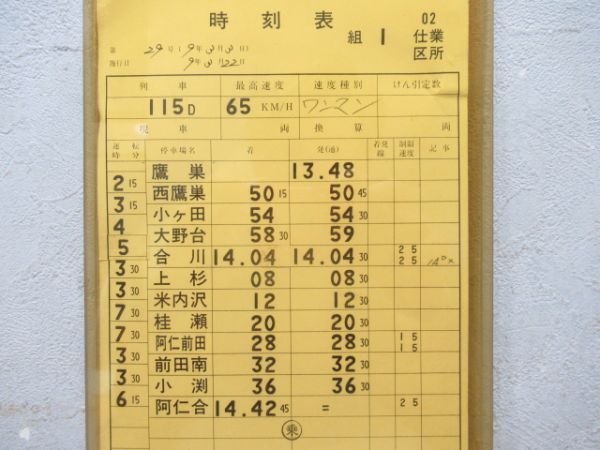 時刻表
組 1
02
仕業
区所
第 29号(9年3月3日)
施行日 9年3月22日
列車 最高速度 速度種別 けん引定数
115D 65 KM/H ワンマン
現車 両 換算 両
運転時分 停車場名 着 発(通) 着発線 制限速度 記事
鷹巣 13.48
2 15
西鷹巣 50 15 50 45
3 15
小ヶ田 54 54 30
4
大野台 58 30 59
5
合川 14.04 14.04 30 25 25
3 30
上杉 08 08 30
3 30
米内沢 12 12 30
7 30
桂瀬 20 20 30
7 30
阿仁前田 28 28 30 15 15
3 30
前田南 32 32 30
3 30
小渕 36 36 30
6 15
阿仁合 14.42 45 = 25
乗